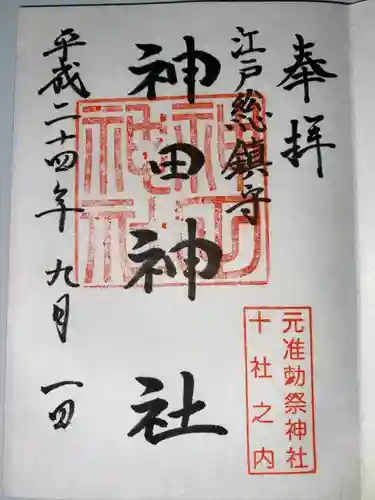 奉拝
江戸総鎮守
神田神社
平成二十四年九月一日
神田神社
元准勅祭神社
十社之内